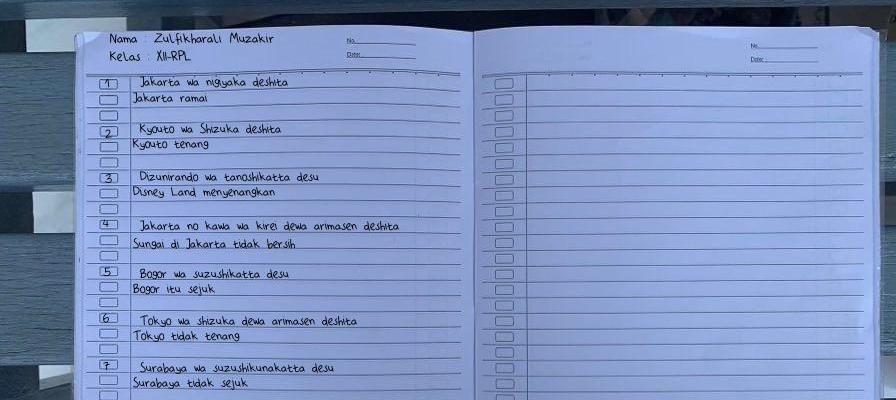 Nama : Zulfikharali Muzakir
Kelas : XII-RPL
No.
Date:
1 Jakarta wa nigiyaka deshita
Jakarta ramai
2 Kyouto wa Shizuka deshita
Kyouto tenang
3 Dizunirando wa tanoshikatta desu
Disney Land menyenangkan
4 Jakarta no kawa wa kirei dewa arimasen deshita
Sungai di Jakarta tidak bersih
5 Bogor wa suzushikatta desu
Bogor itu sejuk
6 Tokyo wa shizuka dewa arimasen deshita
Tokyo tidak tenang
7 Surabaya wa suzushikunakatta desu
Surabaya tidak sejuk
No.
Date: